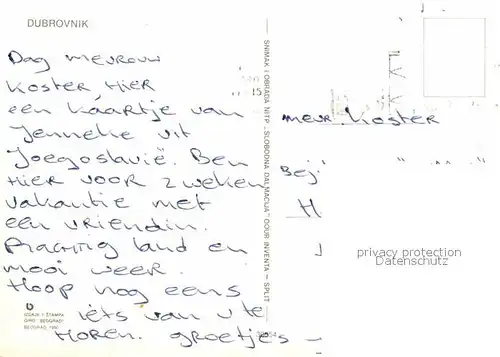 DUBROVNIK
Dag mevrouw
Koster, Hier
een kaartje van
Jenneke uit
Joegoslavië. Ben
Hier voor 2 weken
vakantie met
een vriendin.
Prachtig land en
mooi weer.
Hoop nog eens
iets van u te
Horen. Groetjes –
SNIMAK I OBRADA NITP „SLOBODNA DALMACIJA" OOUR INVENTA – SPLIT
IZDAJE I ŠTAMPA
GIRO "BEOGRAD"
BEOGRAD
15
mevr Koster
Bej
H
privacy protection
Datenschutz